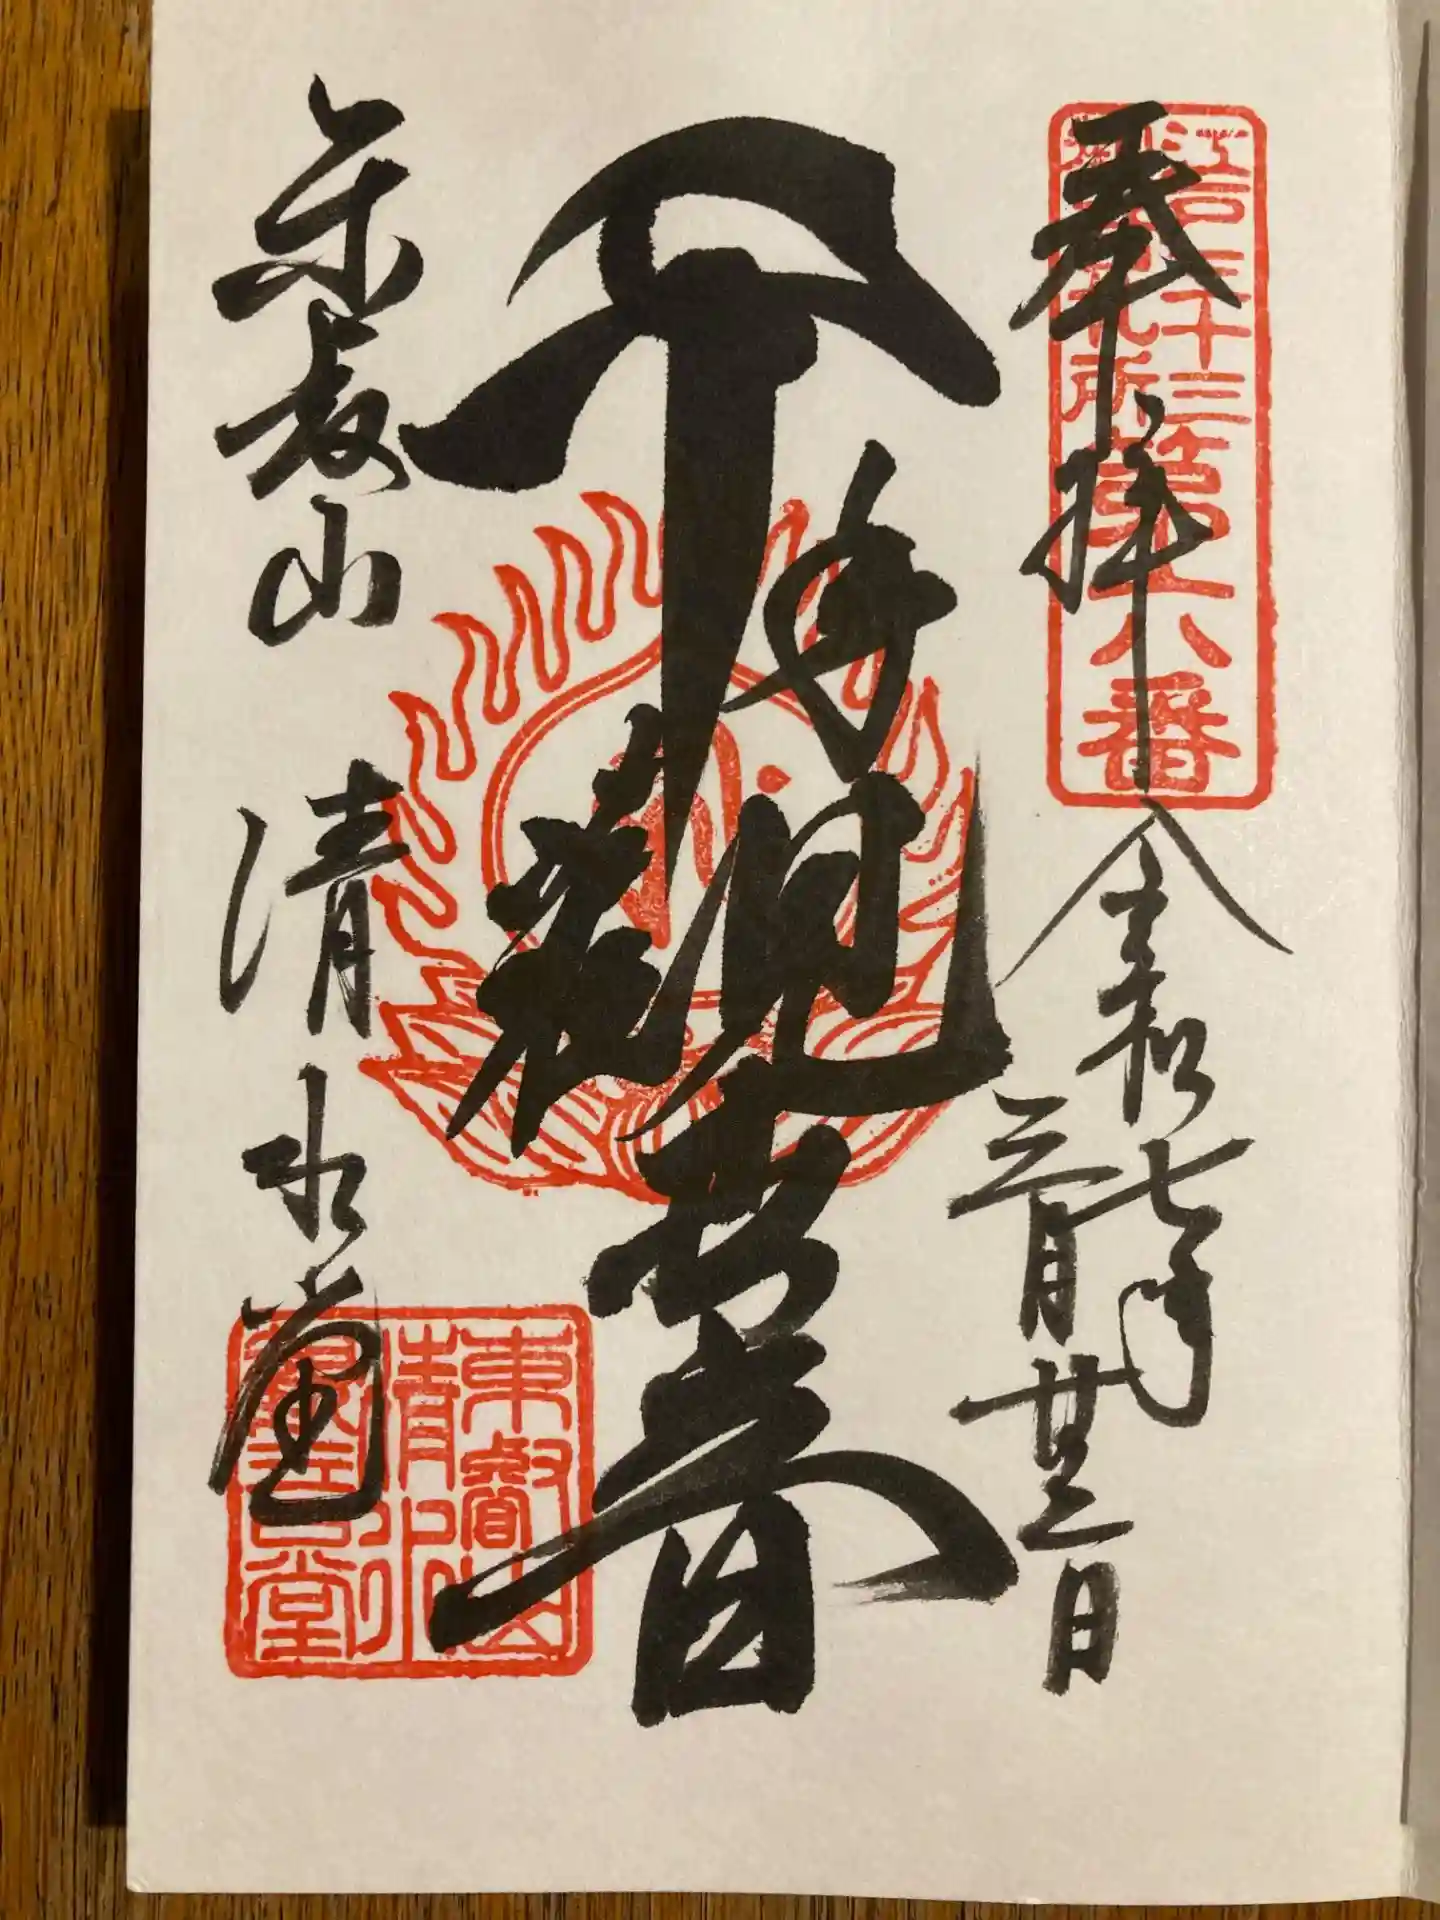 江戸三十三
観音札所
第六番
奉拝
令和七年
三月廿三日
千手観世音
東叡山 清水堂
東叡山
清水
観音堂